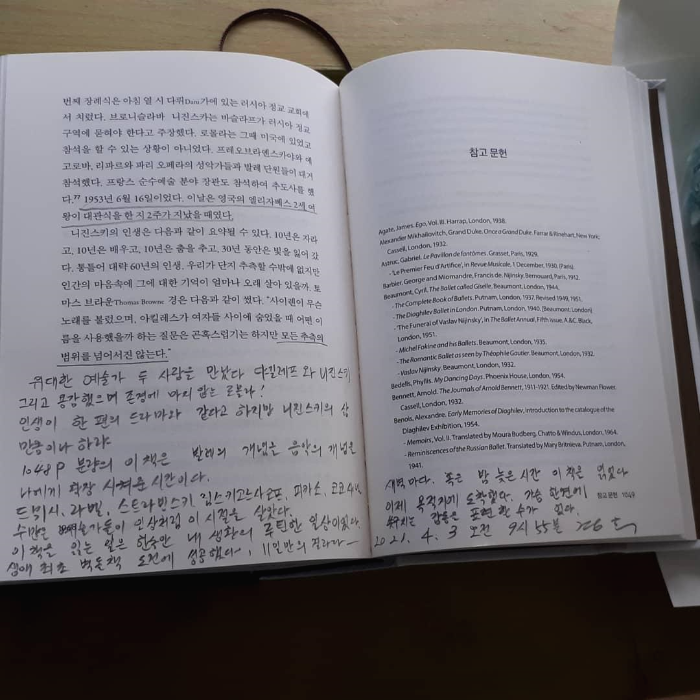 번째 장례식은 아침 열 시 다뤼Daru가에 있는 러시아 정교 교회에
서 치렀다. 브로니슬라바 니진스카는 바슬라프가 러시아 정교
구역에 묻혀야 한다고 주장했다. 로몰라는 그때 미국에 있었고
참석을 할 수 있는 상황이 아니었다. 프레오브라옌스카야와 예
고로바, 리파르와 파리 오페라의 성악가들과 발레 단원들이 대거
참석했다. 프랑스 순수예술 분야 장관도 참석하여 추도사를 했
다.77 1953년 6월 16일이었다. 이날은 영국의 엘리자베스 2세 여
왕이 대관식을 한 지 2주가 지났을 때였다.
니진스키의 인생은 다음과 같이 요약될 수 있다. 10년은 자라
고, 10년은 배우고, 10년은 춤을 추고, 30년 동안은 빛을 잃어 갔
다. 통틀어 대략 60년의 인생. 우리가 단지 추측할 수밖에 없지만
인간의 마음속에 그에 대한 기억이 얼마나 오래 살아 있을까. 토
마스 브라운Thomas Browne 경은 다음과 같이 썼다. "사이렌이 무슨
노래를 불렀으며, 아킬레스가 여자들 사이에 숨었을 때 어떤 이
름을 사용했을까 하는 질문은 곤혹스럽기는 하지만 모든 추측의
범위를 넘어서진 않는다."
위대한 예술가 두 사람을 만났다 댜길레프와 니진스키
그리고 용감했으며 존경에 마지 않는 로몰라!
인생이 한 편의 드라마와 같다고 하지만 니진스키의 삶
만큼이나 하랴
1048P 분량의 이 책은 발레의 개념은 음악의 개념은
나에게 확장 시켜준 시간이다.
드뷔시, 라벨, 스트라빈스키, 림스키코르사코프, 피카소, 코코 샤넬,
수많은 예술가들이 인상처럼 이 시절을 살았다.
이 책을 읽는 일은 한동안 내 생활의 루틴한 일상이었다.
생애 최초 벽돌책 도전에 성공했다. 11일만의
참고 문헌
Agate, James. Ego, Vol. III. Harrap, London, 1938.
Alexander Mikhailovitch, Grand Duke, Once a Grand Duke. Farrar & Rinehart, New York;
Cassell, London, 1932.
Astruc, Gabriel. Le Pavillon de fantômes. Grasset, Paris, 1929.
- 'Le Premier Feu d'Artifice', in Revue Musicale, 1 December, 1930. (Paris).
Barbier, George and Miomandre, Francis de. Nijinsky. Bernouard, Paris, 1912.
Beaumont, Cyril. The Ballet called Giselle. Beaumont, London, 1944.
- The Complete Book of Ballets. Putnam, London, 1937. Revised 1949, 1951.
- The Diaghilev Ballet in London. Putnam, London, 1940. (Beaumont London)
- 'The Funeral of Vaslav Nijinsky', in The Ballet Annual, Fifth issue, A.&C. Black,
London, 1951.
- Michel Fokine and his Ballets. Beaumont, London, 1935.
- The Romantic Ballet as seen by Théophile Gautier. Beaumont, London, 1932.
- Vaslav Nijinsky. Beaumont, London, 1932.
Bedells, Phyllis. My Dancing Days. Phoenix House, London, 1954.
Bennett, Arnold. The Journals of Arnold Bennett, 1911-1921. Edited by Newman Flower.
Cassell, London, 1932.
Benois, Alexandre. Early Memories of Diaghilev, introduction to the catalogue of the
Diaghilev Exhibition, 1954.
- Memoirs, Vol. II. Translated by Moura Budberg. Chatto & Windus, London, 1964.
- Reminiscences of the Russian Ballet. Translated by Mary Britnieva. Putnam, London,
1941.
새벽 마다. 혹은 밤 늦은 시간 이 책을 읽었다
이제 목적지에 도착했다. 가슴 한편에
감동을 표현 할 수가 없다.
참고 문헌 1049
2021. 4. 3 오전 9시 55분